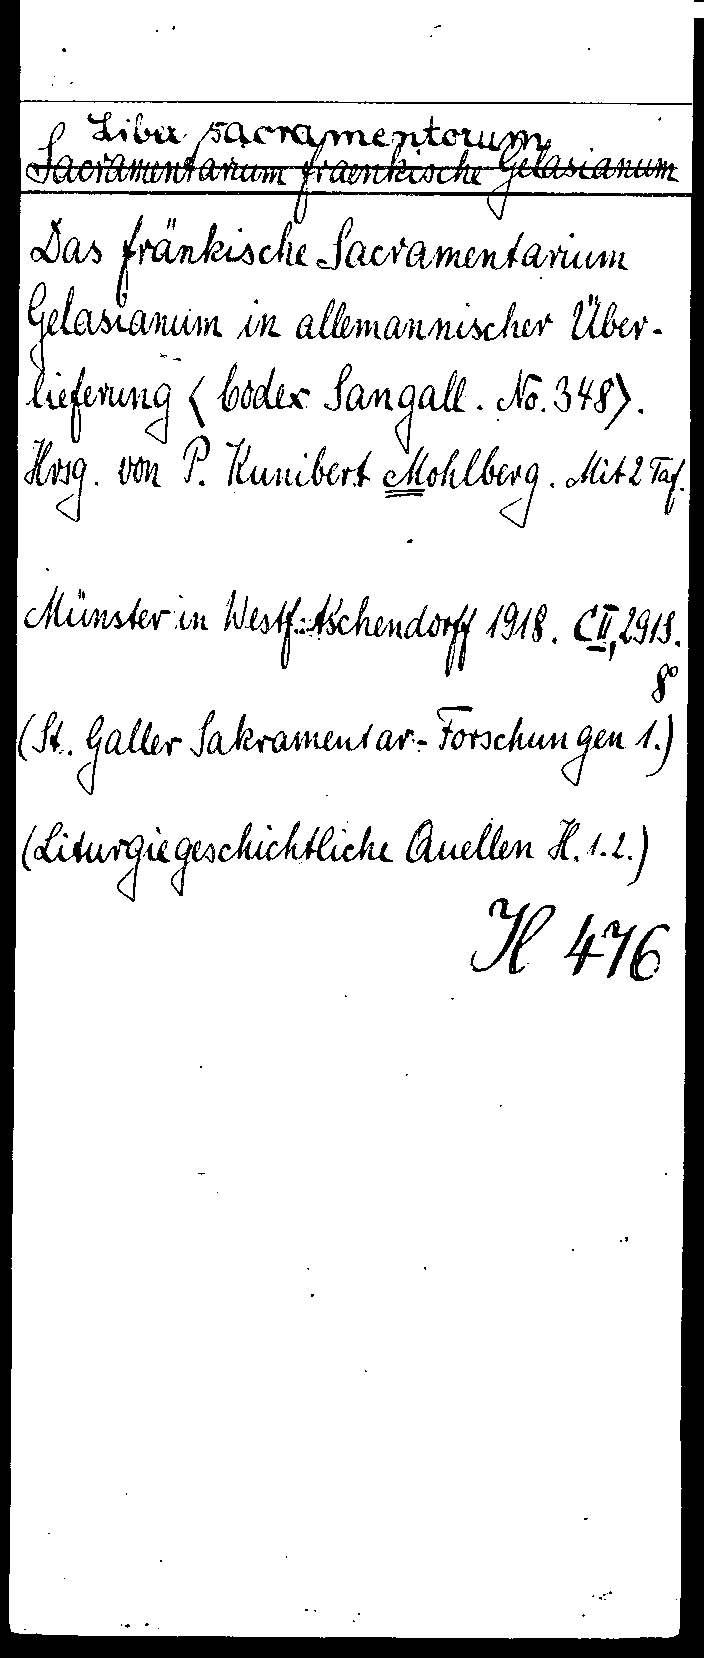 Liber sacramentorum
Sacramentarium fraenkische Gelasianum
Das fränkische Sacramentarium
Gelasianum in allemannischer Über-
lieferung <Codex Sangall. No. 348>.
Hrsg. von P. Kunibert Mohlberg. Mit 2 Taf.
Münster in Westf.: Aschendorff 1918. CII, 291 S.
8°
(St. Galler Sakramentar-Forschungen 1.)
(Liturgiegeschichtliche Quellen H. 1. 2.)
H 476